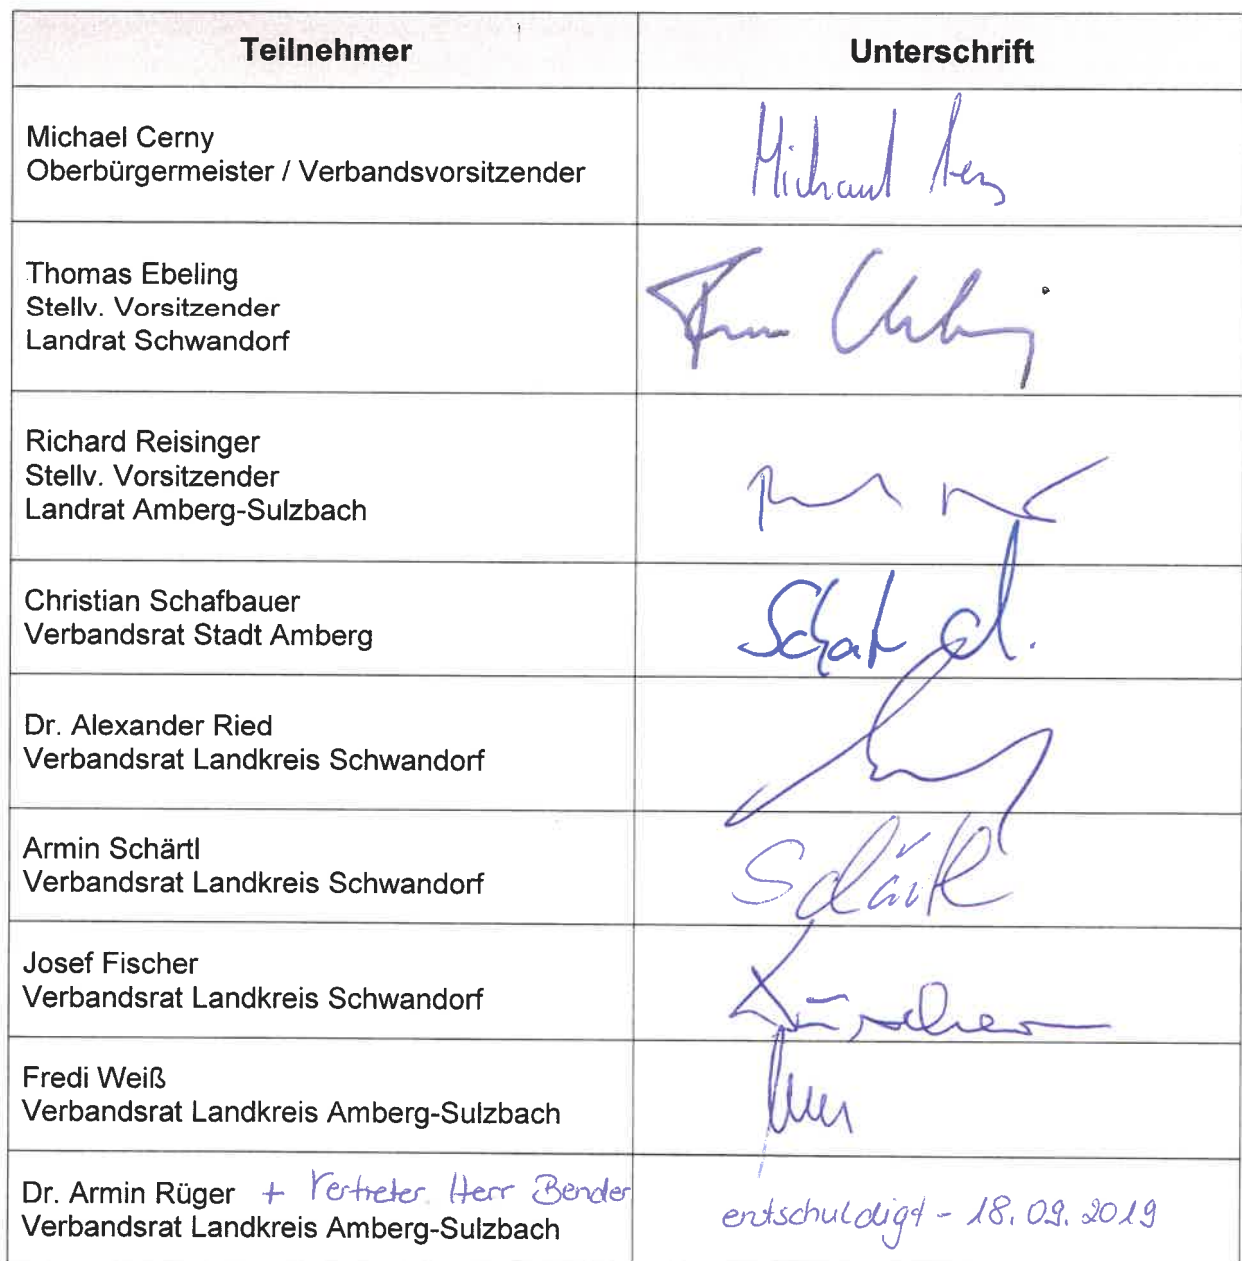 Teilnehmer Unterschrift
Michael Cerny
Oberbürgermeister / Verbandsvorsitzender
Michael
Thomas Ebeling
Stellv. Vorsitzender
Landrat Schwandorf
Richard Reisinger
Stellv. Vorsitzender
Landrat Amberg-Sulzbach
Christian Schafbauer
Verbandsrat Stadt Amberg
Dr. Alexander Ried
Verbandsrat Landkreis Schwandorf
Armin Schärtl
Verbandsrat Landkreis Schwandorf
Schärtl
Josef Fischer
Verbandsrat Landkreis Schwandorf
Fischer
Fredi Weiß
Verbandsrat Landkreis Amberg-Sulzbach
Dr. Armin Rüger + Vertreter Herr Bender
Verbandsrat Landkreis Amberg-Sulzbach
entschuldigt - 18.09.2019